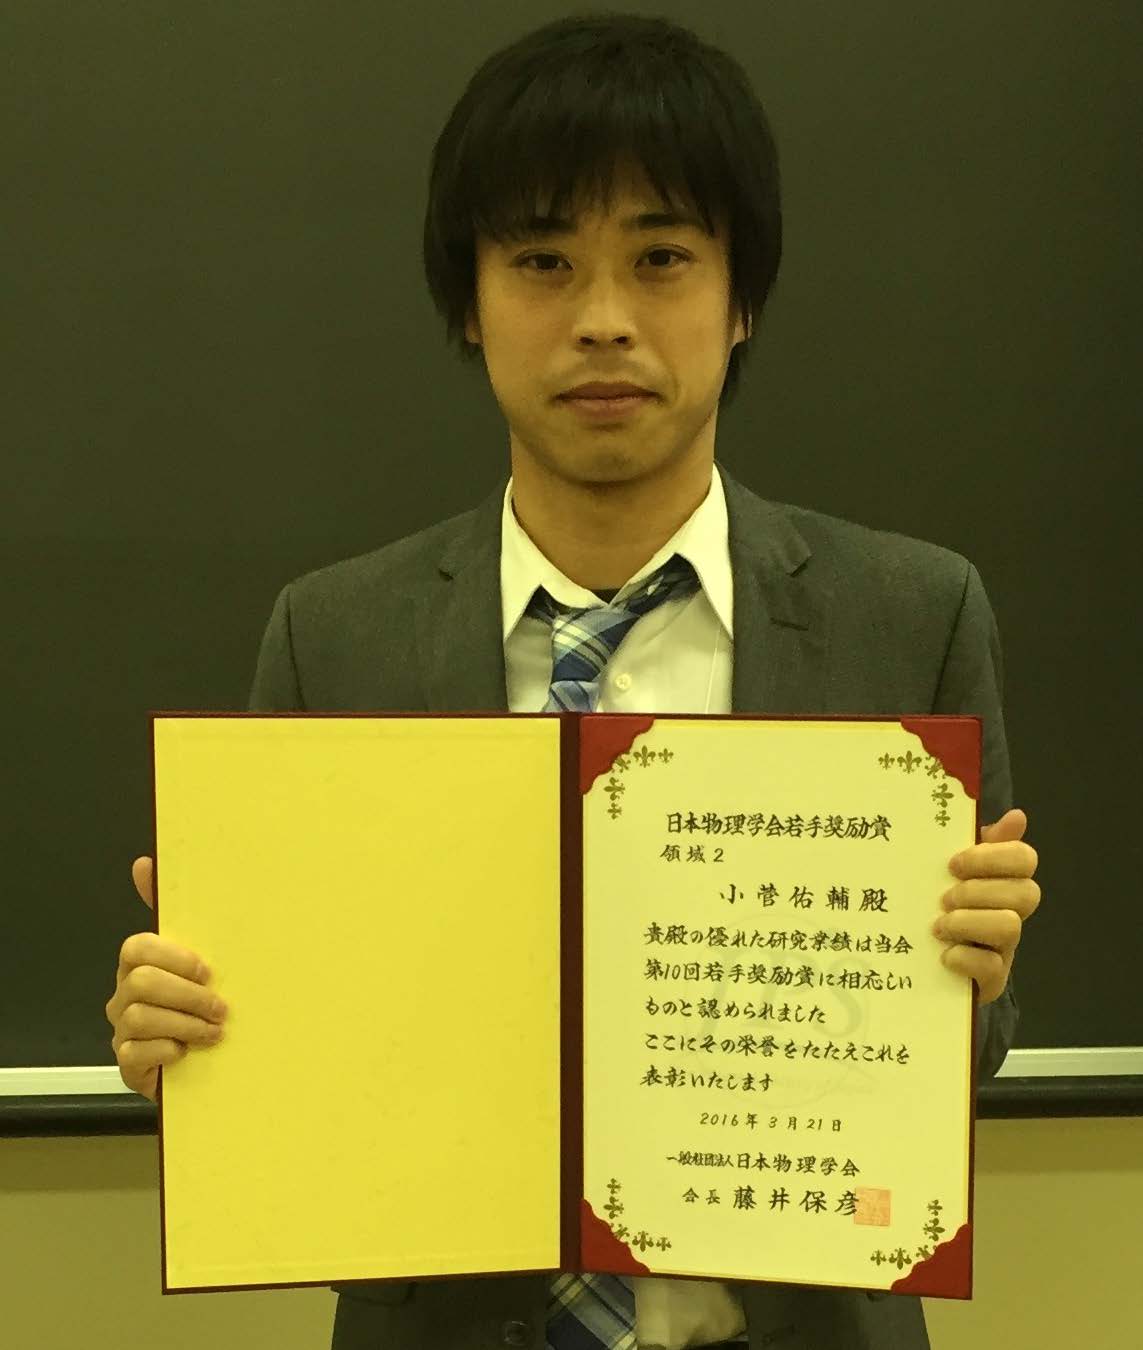 日本物理学会若手奨励賞
領域2
小菅佑輔殿
貴殿の優れた研究業績は当会
第10回若手奨励賞に相応しい
ものと認められました
ここにその栄誉をたたえこれを
表彰いたします
2016年3月21日
一般社団法人日本物理学会
会長 藤井保彦